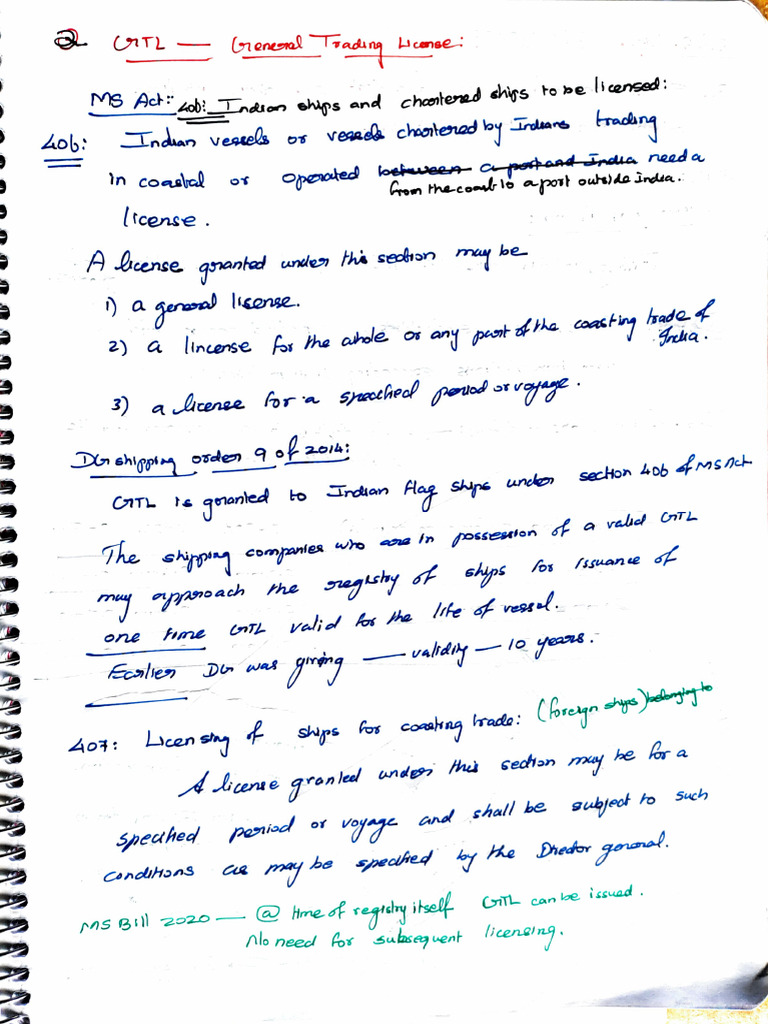 2 GTL — General Trading License:
MS Act: 406: Indian ships and chartered ships to be licensed:
406: Indian vessels or vessels chartered by Indians trading
in coastal or operated between a port and India need a
from the coast to a port outside India.
license.
A license granted under this section may be
1) a general license.
2) a lincense for the whole or any part of the coasting trade of
India.
3) a license for a specified period or voyage.
DG shipping order 9 of 2014:
GTL is granted to Indian flag ships under section 406 of MS Act
The shipping companies who are in possession of a valid GTL
may approach the registry of ships for issuance of
one time GTL valid for the life of vessel.
Earlier DG was giving — validity — 10 years.
407: Licensing of ships for coasting trade: (foreign ships) belonging to
A license granted under this section may be for a
specified period or voyage and shall be subject to such
conditions as may be specified by the Director general.
MS Bill 2020 — @ time of registry itself GTL can be issued.
No need for subsequent licensing.